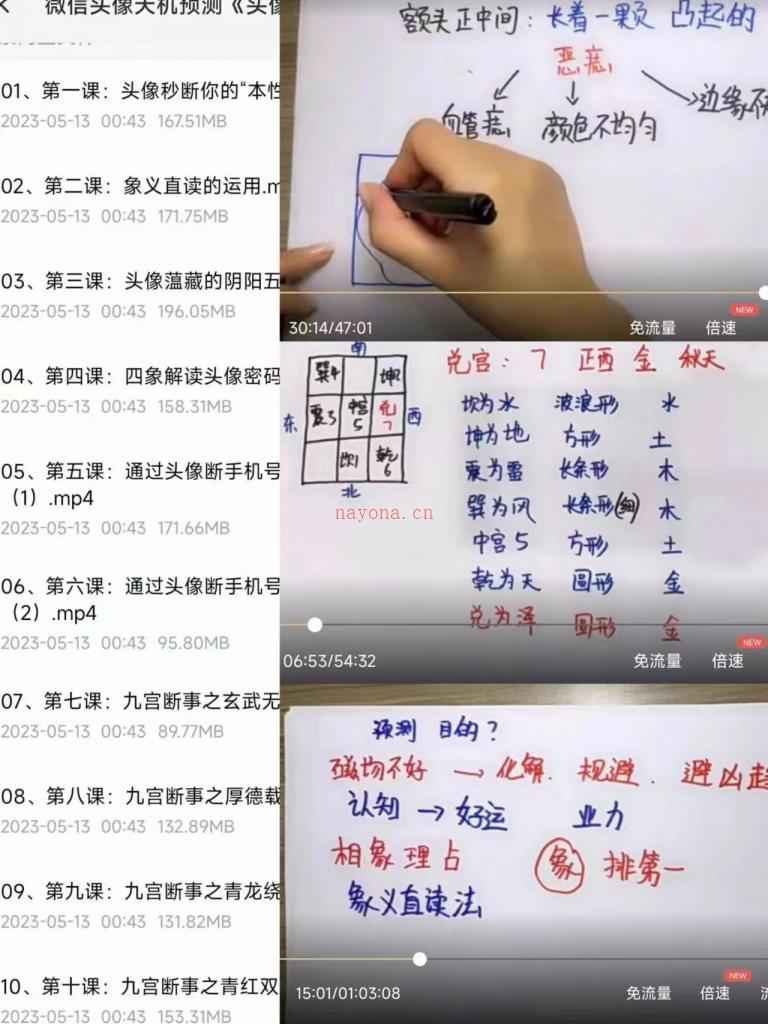 微信头像天机预测《头像
01、第一课：头像秒断你的“本性
2023-05-13 00:43 167.51MB
02、第二课：象义直读的运用.m
2023-05-13 00:43 171.75MB
03、第三课：头像薀藏的阴阳五
2023-05-13 00:43 196.05MB
04、第四课：四象解读头像密码
2023-05-13 00:43 158.31MB
05、第五课：通过头像断手机号
（1）.mp4
2023-05-13 00:43 171.66MB
06、第六课：通过头像断手机号
（2）.mp4
2023-05-13 00:43 95.80MB
07、第七课：九宫断事之玄武无
2023-05-13 00:43 89.77MB
08、第八课：九宫断事之厚德载
2023-05-13 00:43 132.89MB
09、第九课：九宫断事之青龙绕
2023-05-13 00:43 131.82MB
10、第十课：九宫断事之青红双
2023-05-13 00:43 153.31MB
额头正中间：长着一颗 凸起的
恶痣
血管痣 颜色不均匀 边缘不
30:14/47:01 免流量 倍速
NEW
南
巽4 坤2
东 震3 中宫5 兑7 西
坎1 乾6
北
兑宫：7 正西 金 秋天
坎为水 波浪形 水
坤为地 方形 土
震为雷 长条形 木
巽为风 长条形(细) 木
中宫5 方形 土
乾为天 圆形 金
兑为泽 圆形 金
nayona.cn
06:53/54:32 免流量 倍速
NEW
预测 目的？
磁场不好 → 化解．规避．避凶趋
认知 → 好运 业力
相象理占 象 排第一
象义直读法
15:01/01:03:08 免流量 倍速
NEW